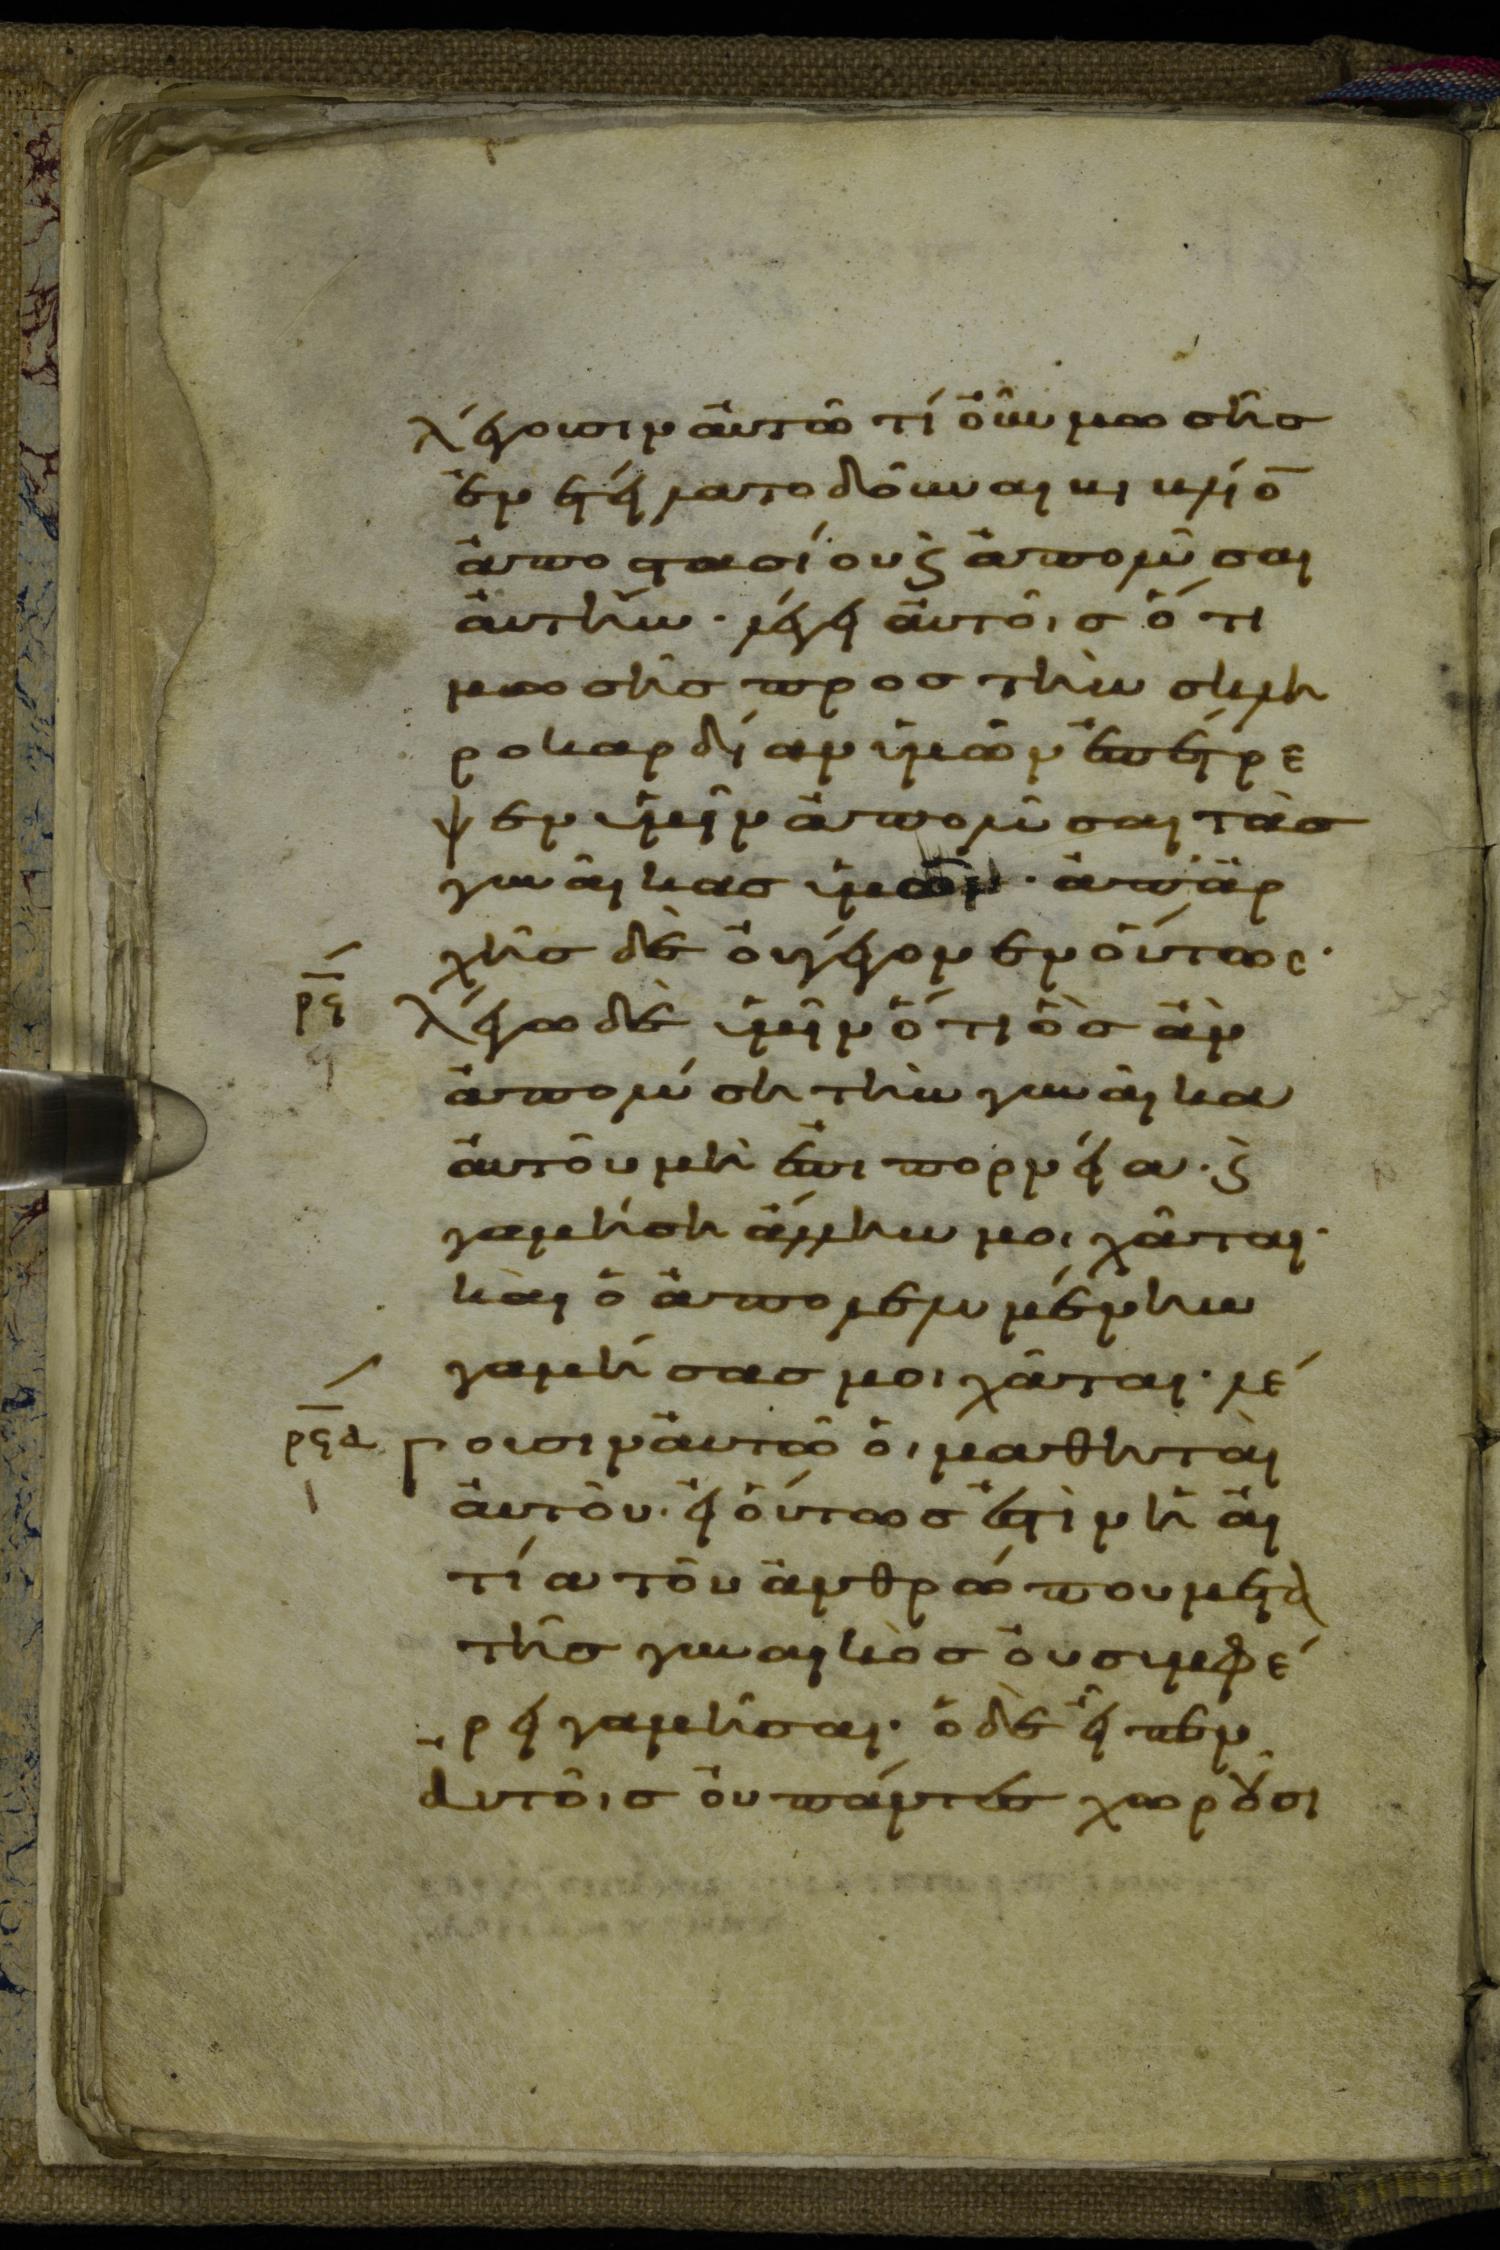 λέγουσιν ἀυτῶ τί ὀῦν μωσῆσ
ἐνετέιλατο δοῦναι κι κλίο
ἀποστασίου ϗ ἀπολῦσαι
ἀυτήν · λέγει ἀυτοῖσ ὅτι
μωσῆσ προσ τὴν σκλη
ροκαρδίαν ὑμῶν ἐπέτρε
ψεν ὑμῖν ἀπολῦσαι τὰσ
γυνᾶικασ ὑμῶν · ἀπ' ἀρ
χῆσ δὲ ὀυ γέγονεν ὅυτωσ ·
ρϟ λέγω δὲ ὑμῖν ὅτι ὃσ ἀν
ἀπολύση τὴν γυνᾶικα
ἀυτοῦ μὴ ἐπι πορνεία · ϗ
γαμήση ἄλλην μοιχᾶται ·
κὰι ὁ ἀπολελυμένην
γαμήσασ μοιχᾶται · λέ
ρϟα γουσιν ἀυτῶ ὁι μαθητὰι
ἀυτοῦ · ἐι ὅυτωσ ἐστὶν ἡ ἀι
τία τοῦ ἀνθρώπου μετὰ
τῆσ γυναικὸσ ὀυ συμφέ
ρει γαμῆσαι · ὁ δὲ ἐῖπεν
ἀυτοῖσ ὀυ πάντεσ χωροῦσι